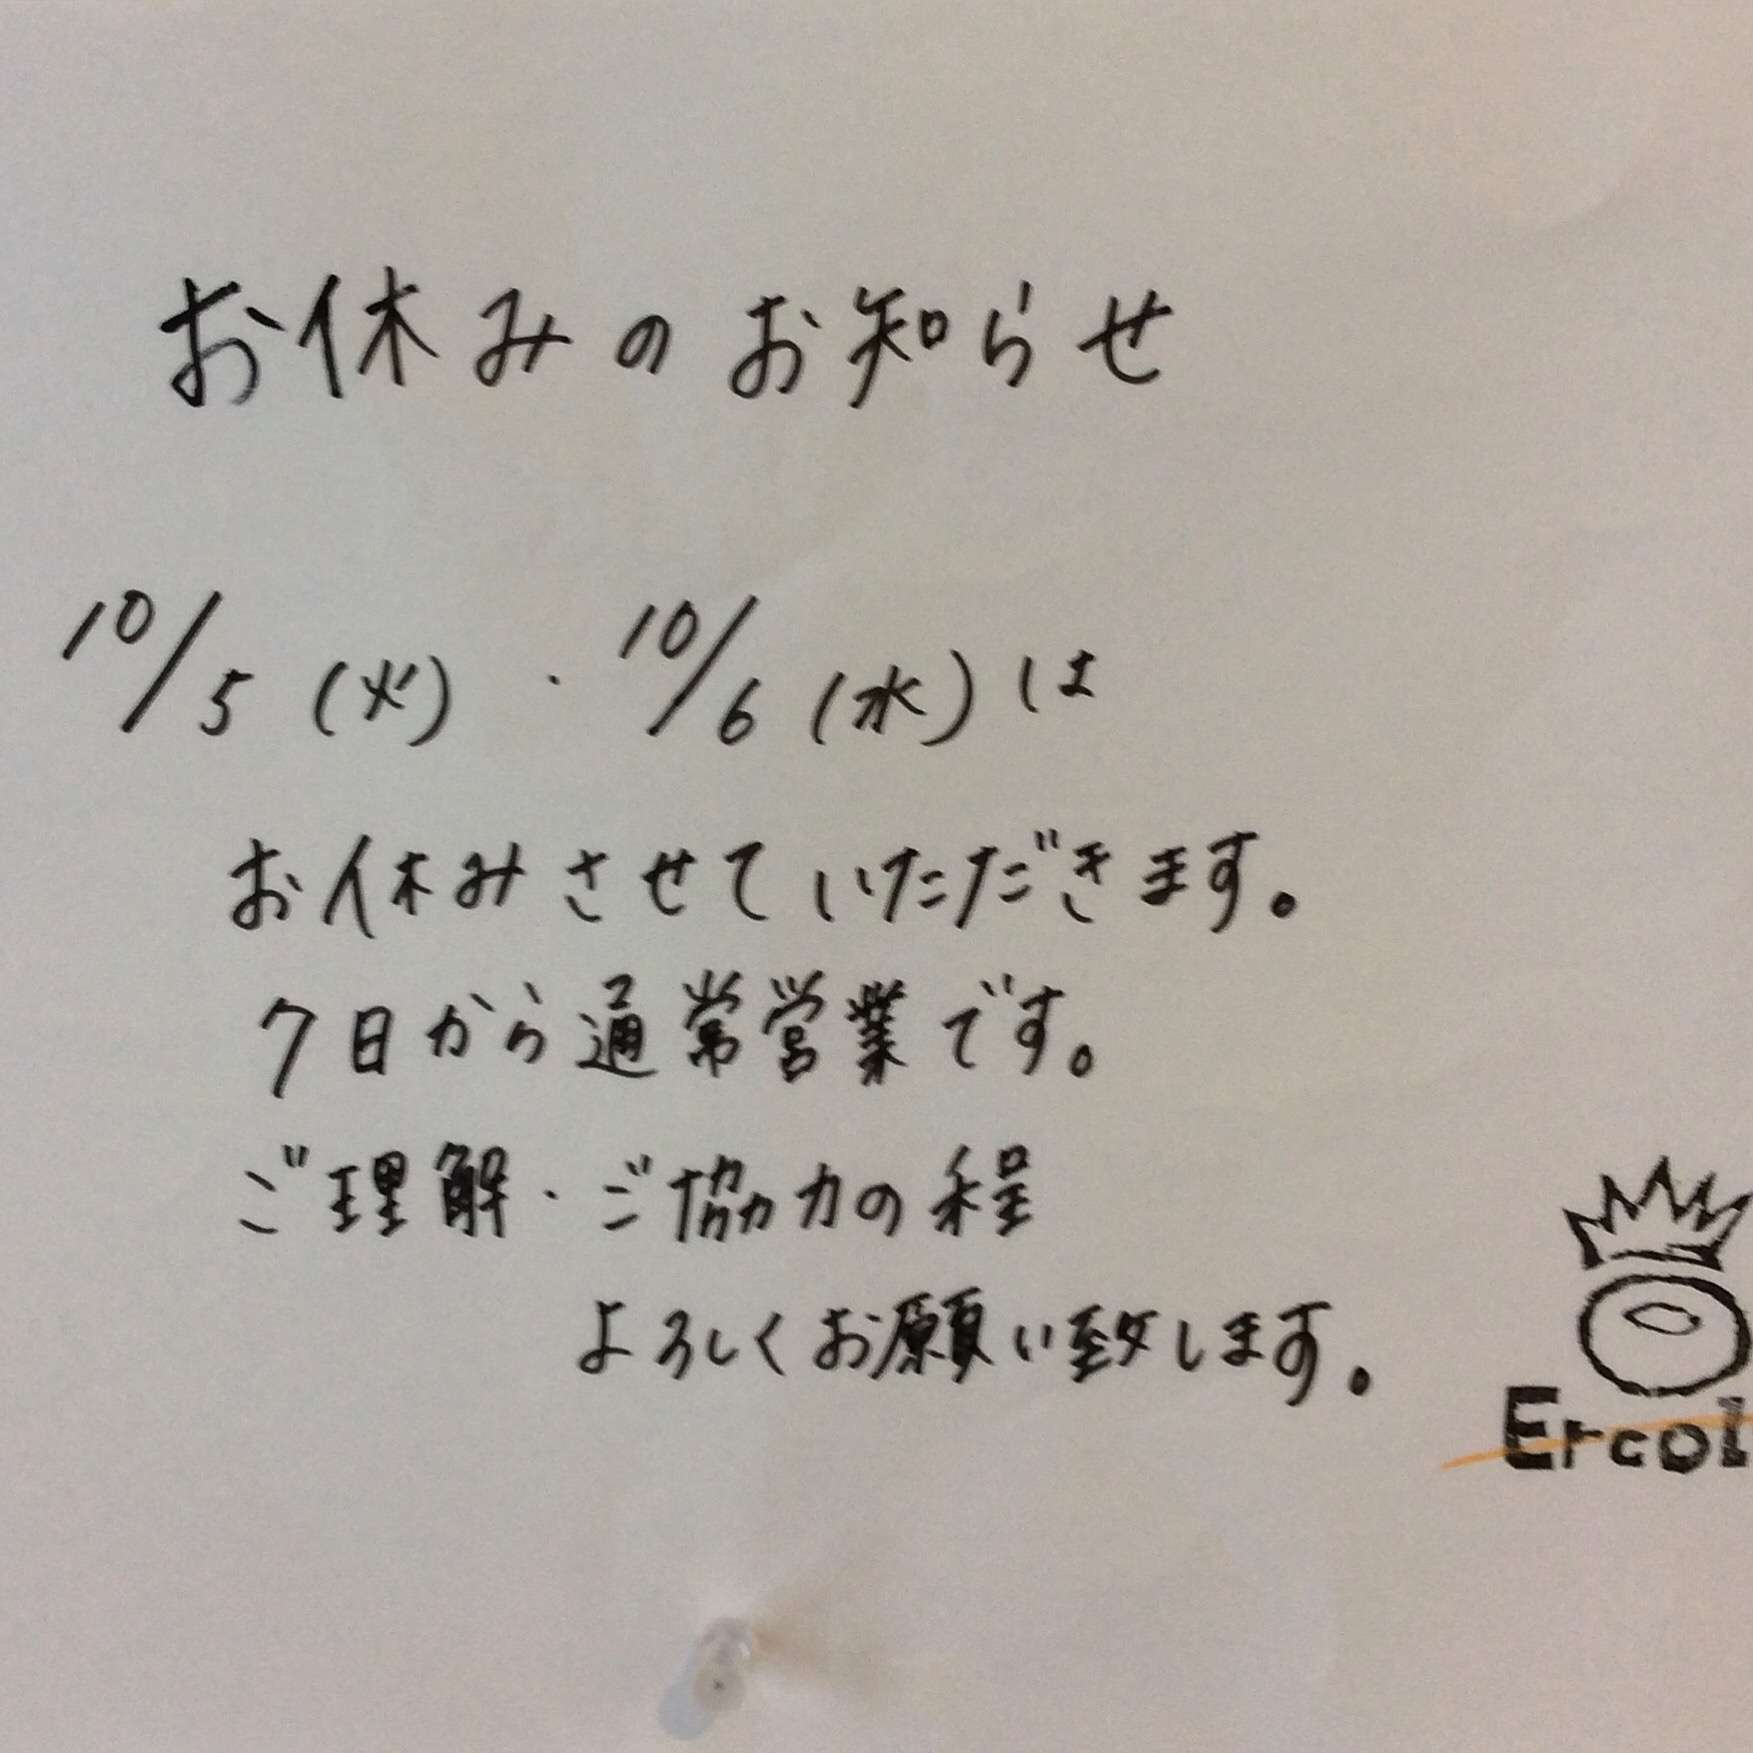 お休みのお知らせ
10/5(火)・10/6(水)は
お休みさせていただきます。
7日から通常営業です。
ご理解・ご協力の程
よろしくお願い致します。
Ercol